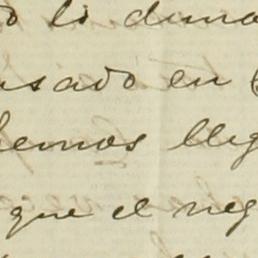 lo dima
usado en
hemos lleg
que el neg